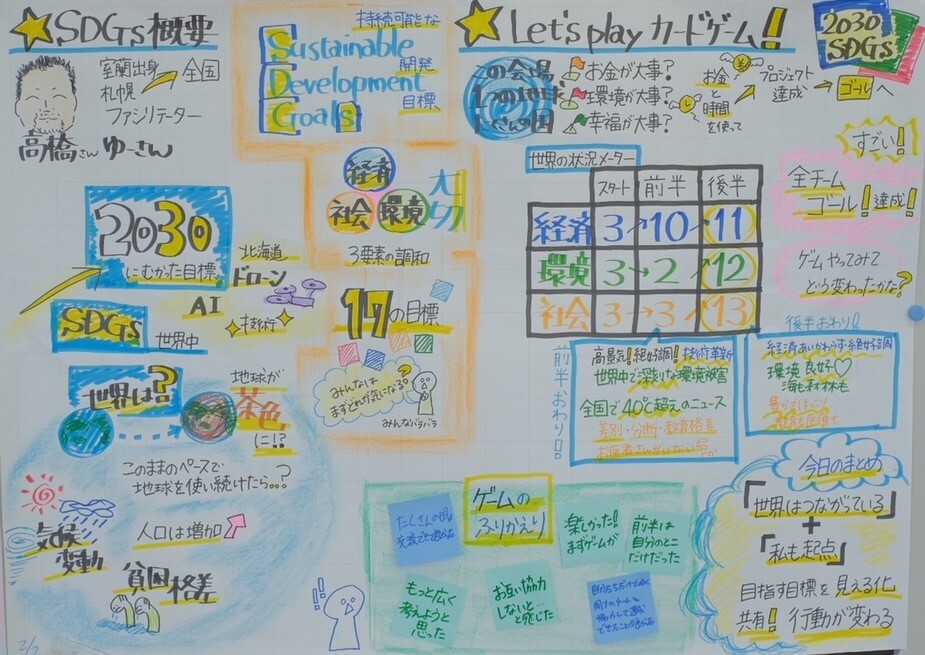 SDGs概要
室蘭出身
札幌
→全国
ファシリテーター
高橋さん ゆーさん
持続可能な
Sustainable
開発
Development
目標
Goals
経済
社会 環境
大切
3要素の調和
17の目標
みんなは
まずどれが気になる?
みんなバラバラ
2030
にむかった目標
北海道
ドローン
AI
技術
SDGs
世界中
世界は?
地球が
茶色
に!?
このままのペースで
地球を使い続けたら。。?
人口は増加
気候
変動
貧困格差
Let's play カードゲーム!
2030
SDGs
この会場
1つの地球
たくさんの国
お金が大事?
環境が大事?
幸福が大事?
お金
と
時間
を使って
プロジェクト
達成
ゴールへ
世界の状況メーター
スタート 前半 後半
経済 3→10→11
環境 3→2→12
社会 3→3→13
すごい!
全チーム
ゴール!達成!
ゲームやってみて
どう変わったかな?
前半おわり
高景気!絶好調!技術革新
世界中で深刻な環境被害
全国で40℃超えのニュース
差別・分断・教育格差
後半おわり!
経済あいかわらず絶好調
環境良好♡
海も森林も
ゲームの
ふりかえり
たくさんの国と
楽しかった!
まずゲームが
前半は
自分のとこ
だけだった
もっと広く
考えようと
思った
お互い協力
しないと…
と感じた
今日のまとめ
「世界はつながっている」
+
「私も起点」
目指す目標を見える化
共有! 行動が変わる